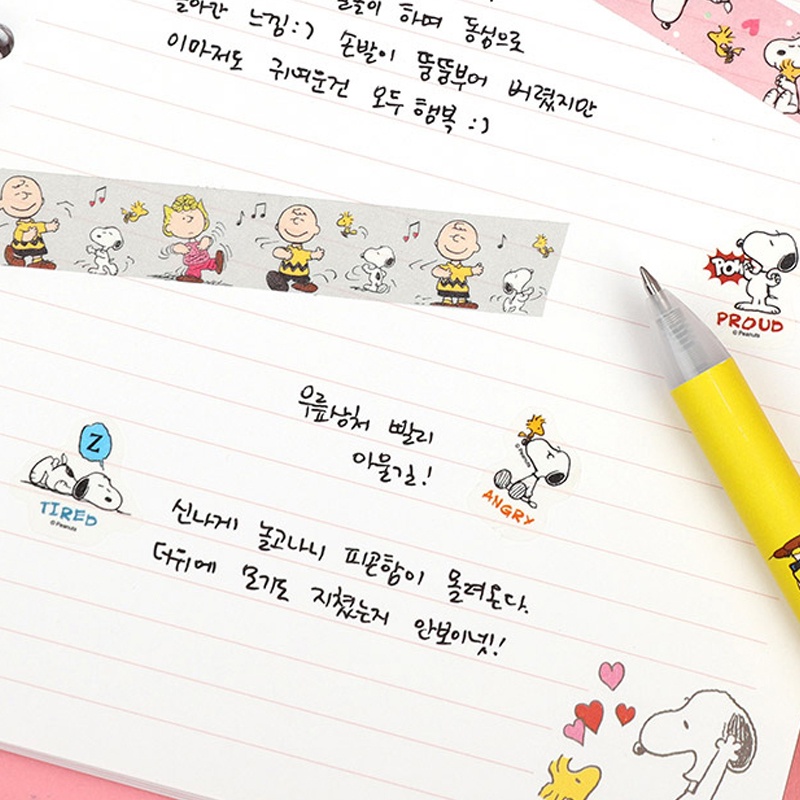 돌아간 느낌:) 하며 동성으로
이마저도 귀여운건 손발이 뚱뚱부어 버렸지만
모두 행복 :)
POW
PROUD
© Peanuts
우리상처 빨리
아물길!
Z
TIRED
© Peanuts
ANGRY
© Peanuts
신나게 놀고나니 피곤함이 몰려온다.
더위에 모기도 지쳤는지 안보이넷!